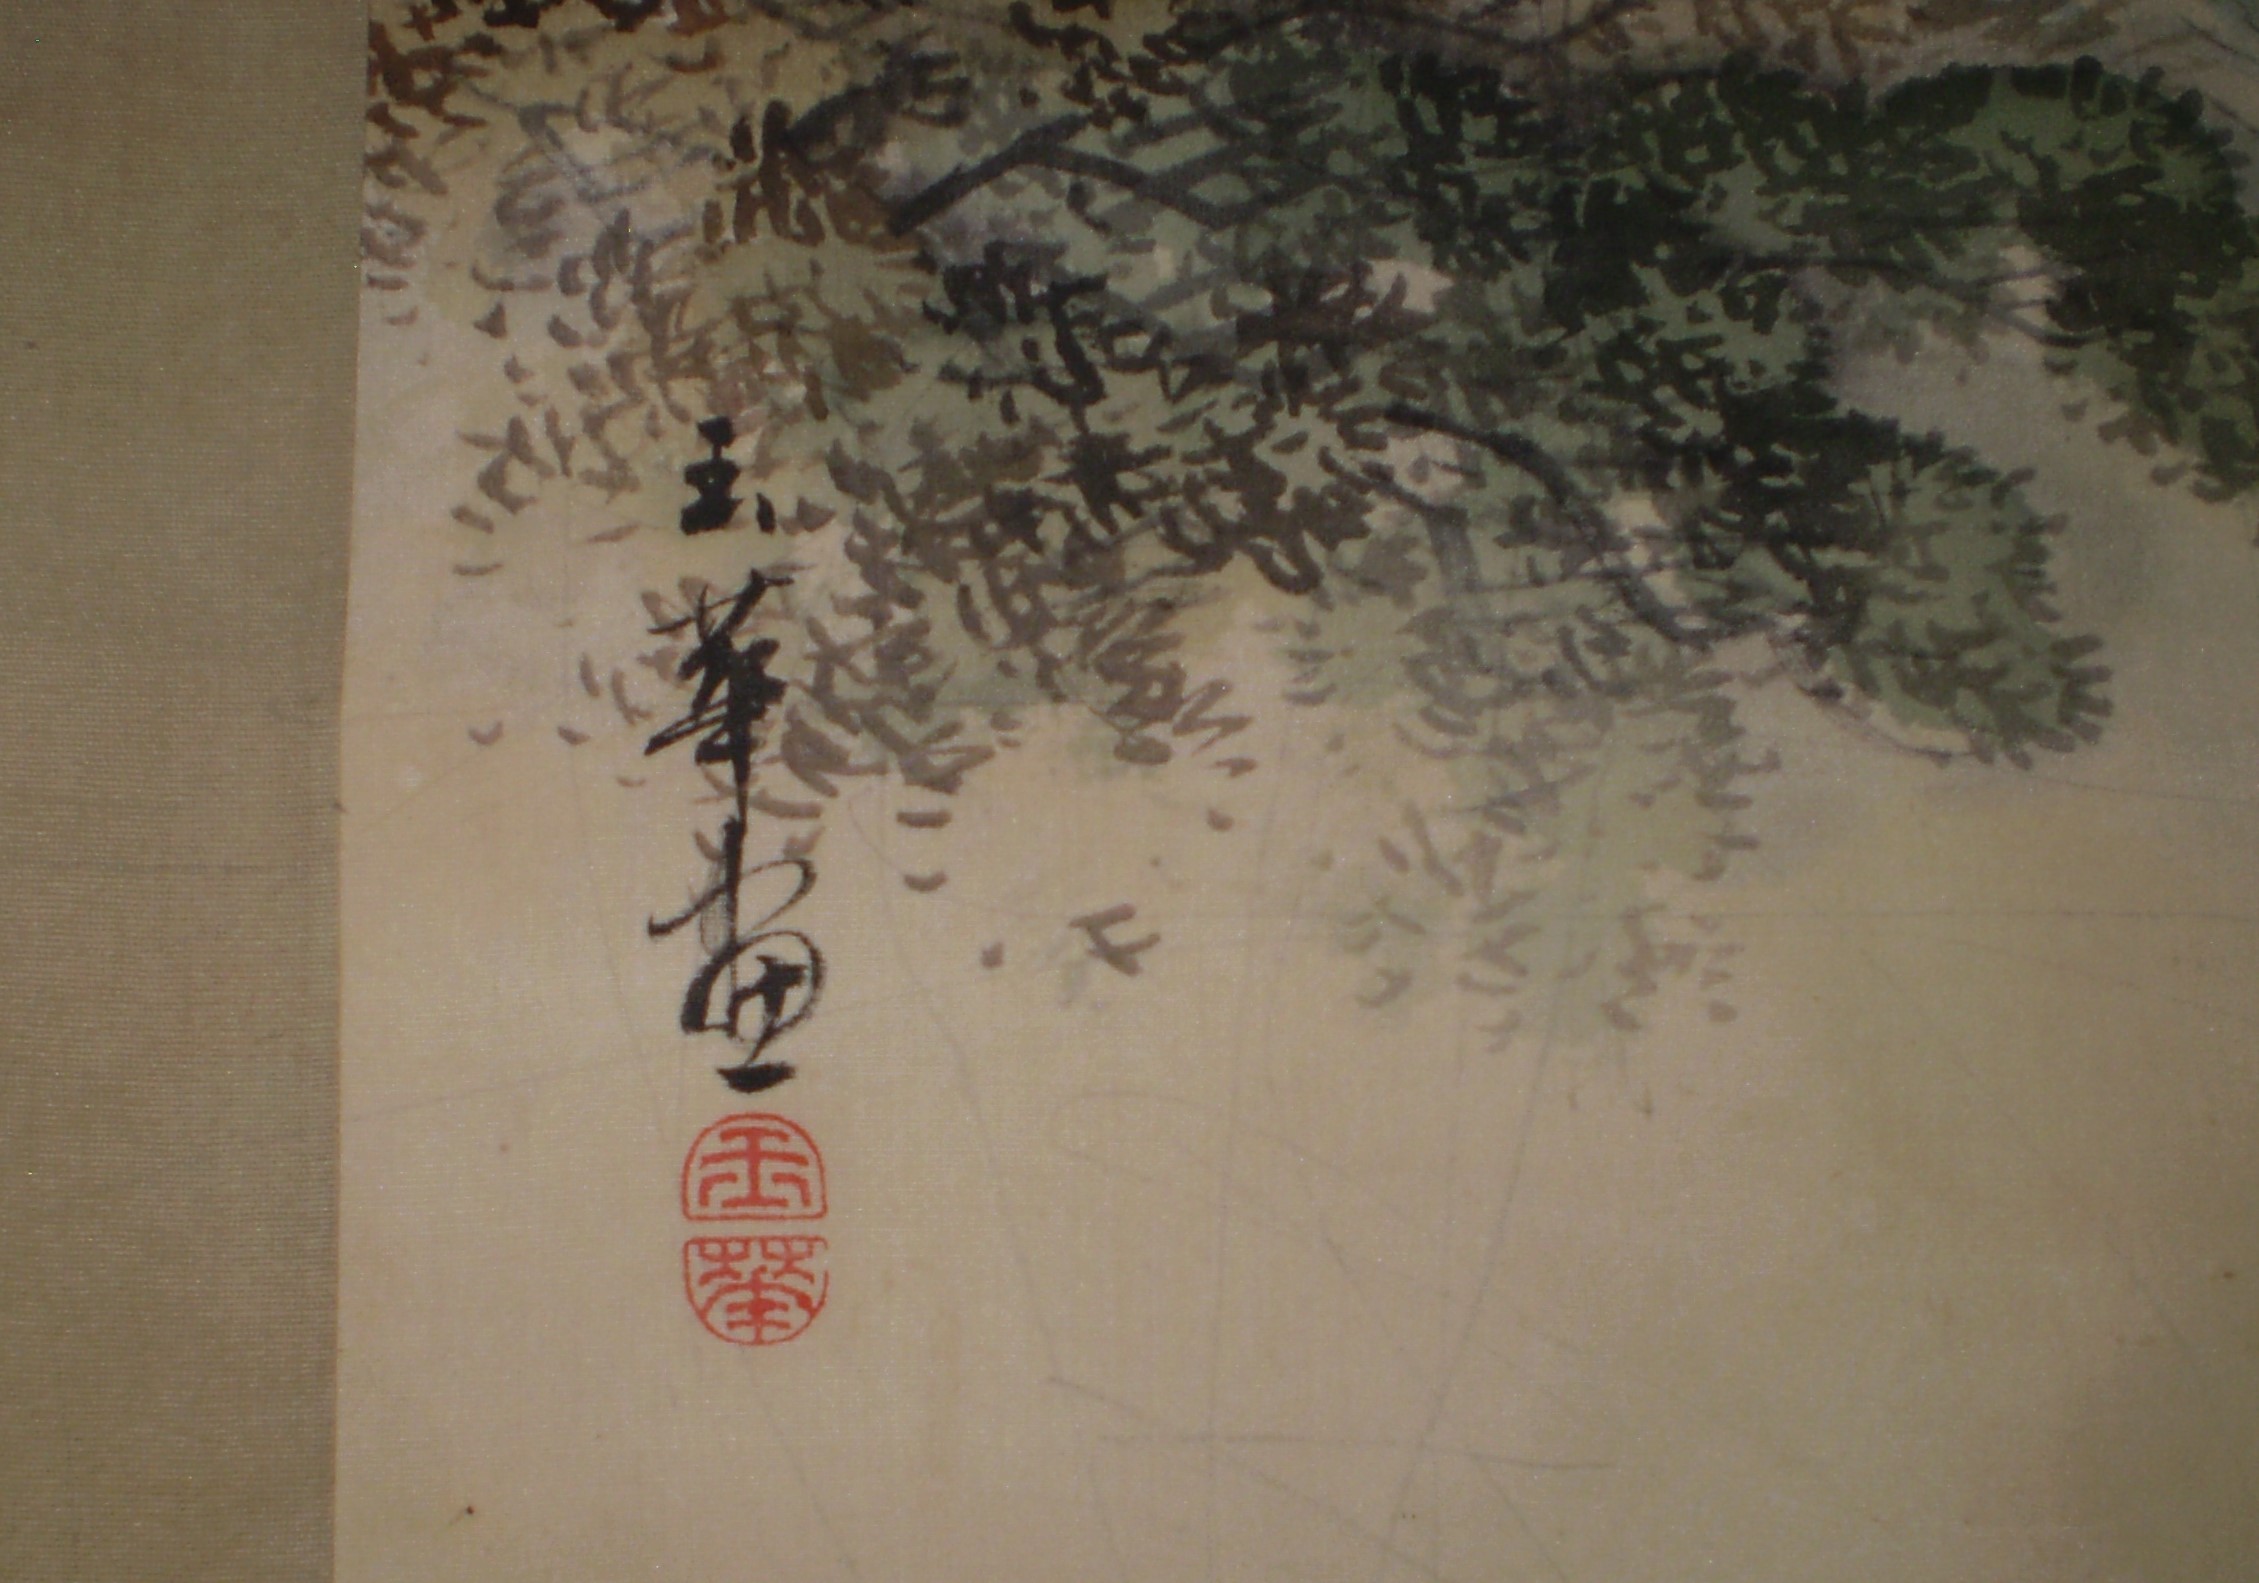 玉華画
玉
華